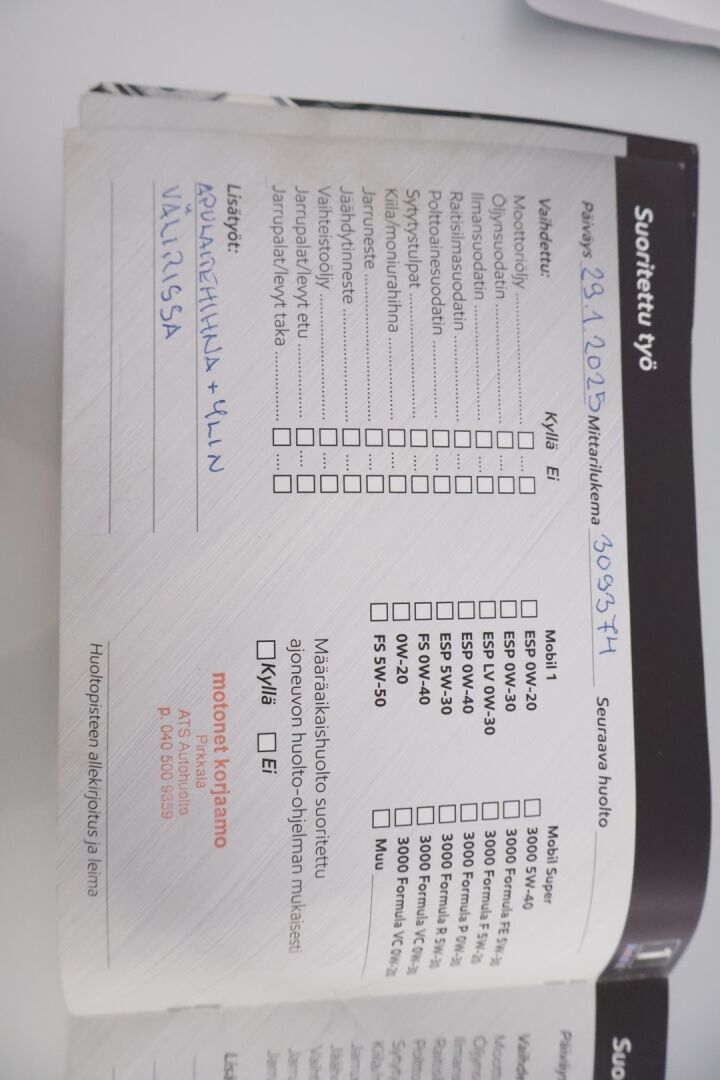 Suoritettu työ
Päiväys 29.1.2025 Mittarilukema 309374 Seuraava huolto
Vaihdettu: Kyllä Ei
Moottoriöljy
Öljynsuodatin
Ilmansuodatin
Raitisilmasuodatin
Polttoainesuodatin
Sytytystulpat
Kiila/moniurahihna
Jarruneste
Jäähdytinneste
Vaihteistoöljy
Jarrupalat/levyt etu
Jarrupalat/levyt taka
Mobil 1
ESP 0W-20
ESP 0W-30
ESP LV 0W-30
ESP 0W-40
ESP 5W-30
FS 0W-40
0W-20
FS 5W-50
Mobil Super
3000 5W-40
3000 Formula FE 5W-30
3000 Formula F 5W-20
3000 Formula P 0W-30
3000 Formula R 5W-30
3000 Formula VC 0W-30
3000 Formula VC 0W-20
Muu
Lisätyöt:
APULAITEHIHNA + YLIN
VÄLIRISSA
Määräaikaishuolto suoritettu
ajoneuvon huolto-ohjelman mukaisesti
Kyllä Ei
motonet korjaamo
Pirkkala
ATS Autohuolto
p. 040 500 9359
Huoltopisteen allekirjoitus ja leima